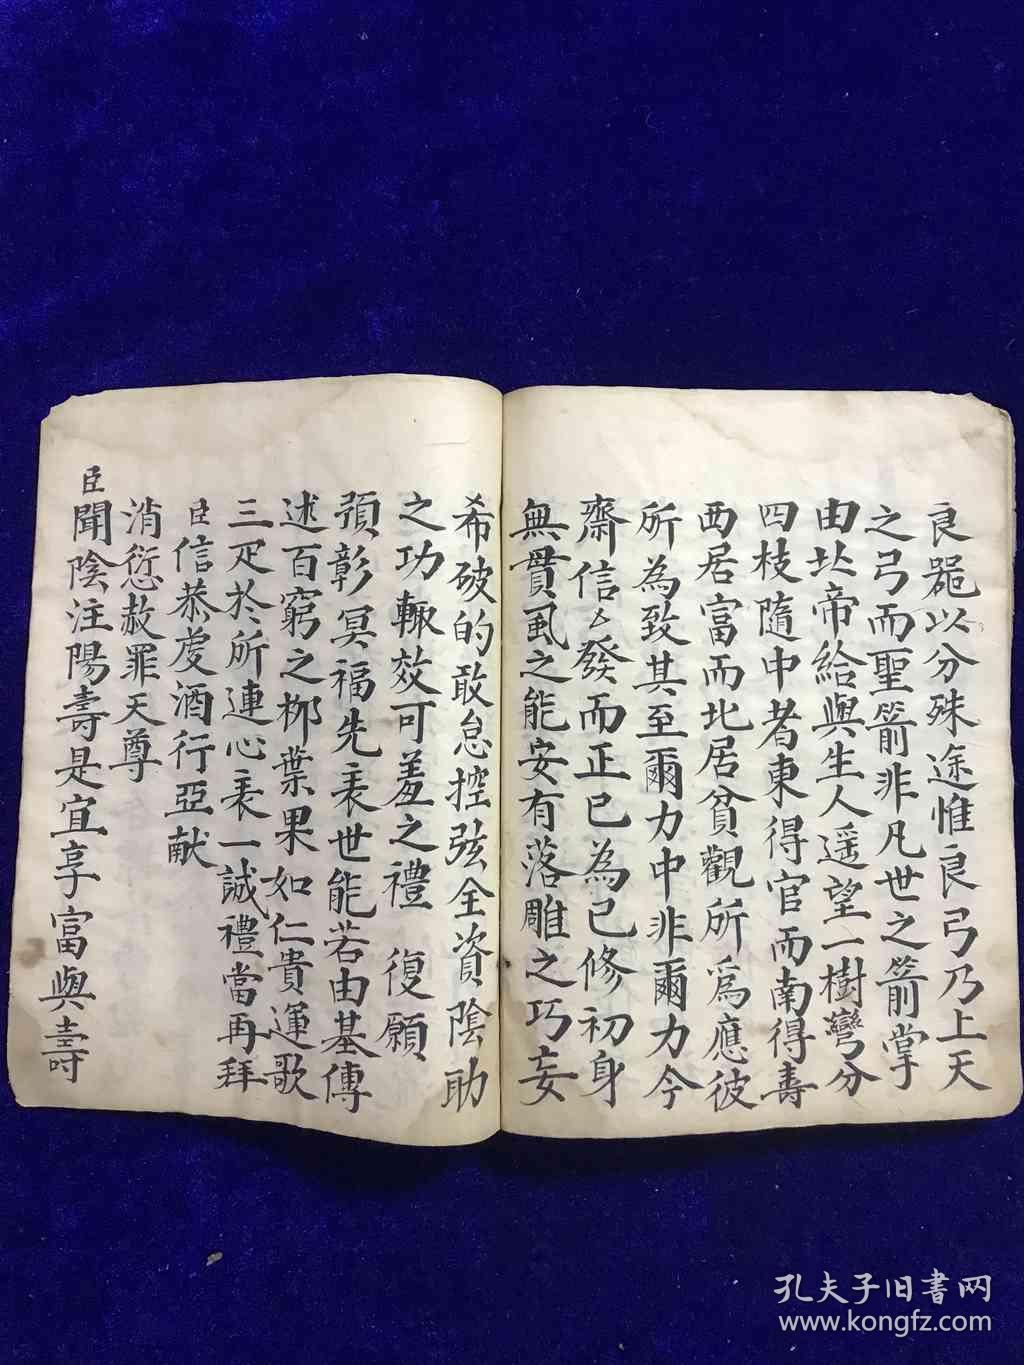 良器以分殊途惟良弓乃上天
之弓而聖箭非凡世之箭掌
由北帝給與生人遥望一樹彎分
四枝隨中者東得官而南得壽
西居富而北居貧觀所爲應彼
所為致其至爾力中非爾力今
齋信厶發而正已為己修初身
無貫虱之能安有落雕之巧妄
希破的敢怠控弦全資陰助
之功輙效可羞之禮 復願
預彰冥福先表世能若由基傳
述百窮之柳葉果如仁貴運歌
三疋於所連心表一誠禮當再拜
臣信恭虔酒行亞献
消愆赦罪天尊
臣聞陰注陽壽是宜享富與壽
孔夫子旧书网
www.kongfz.com